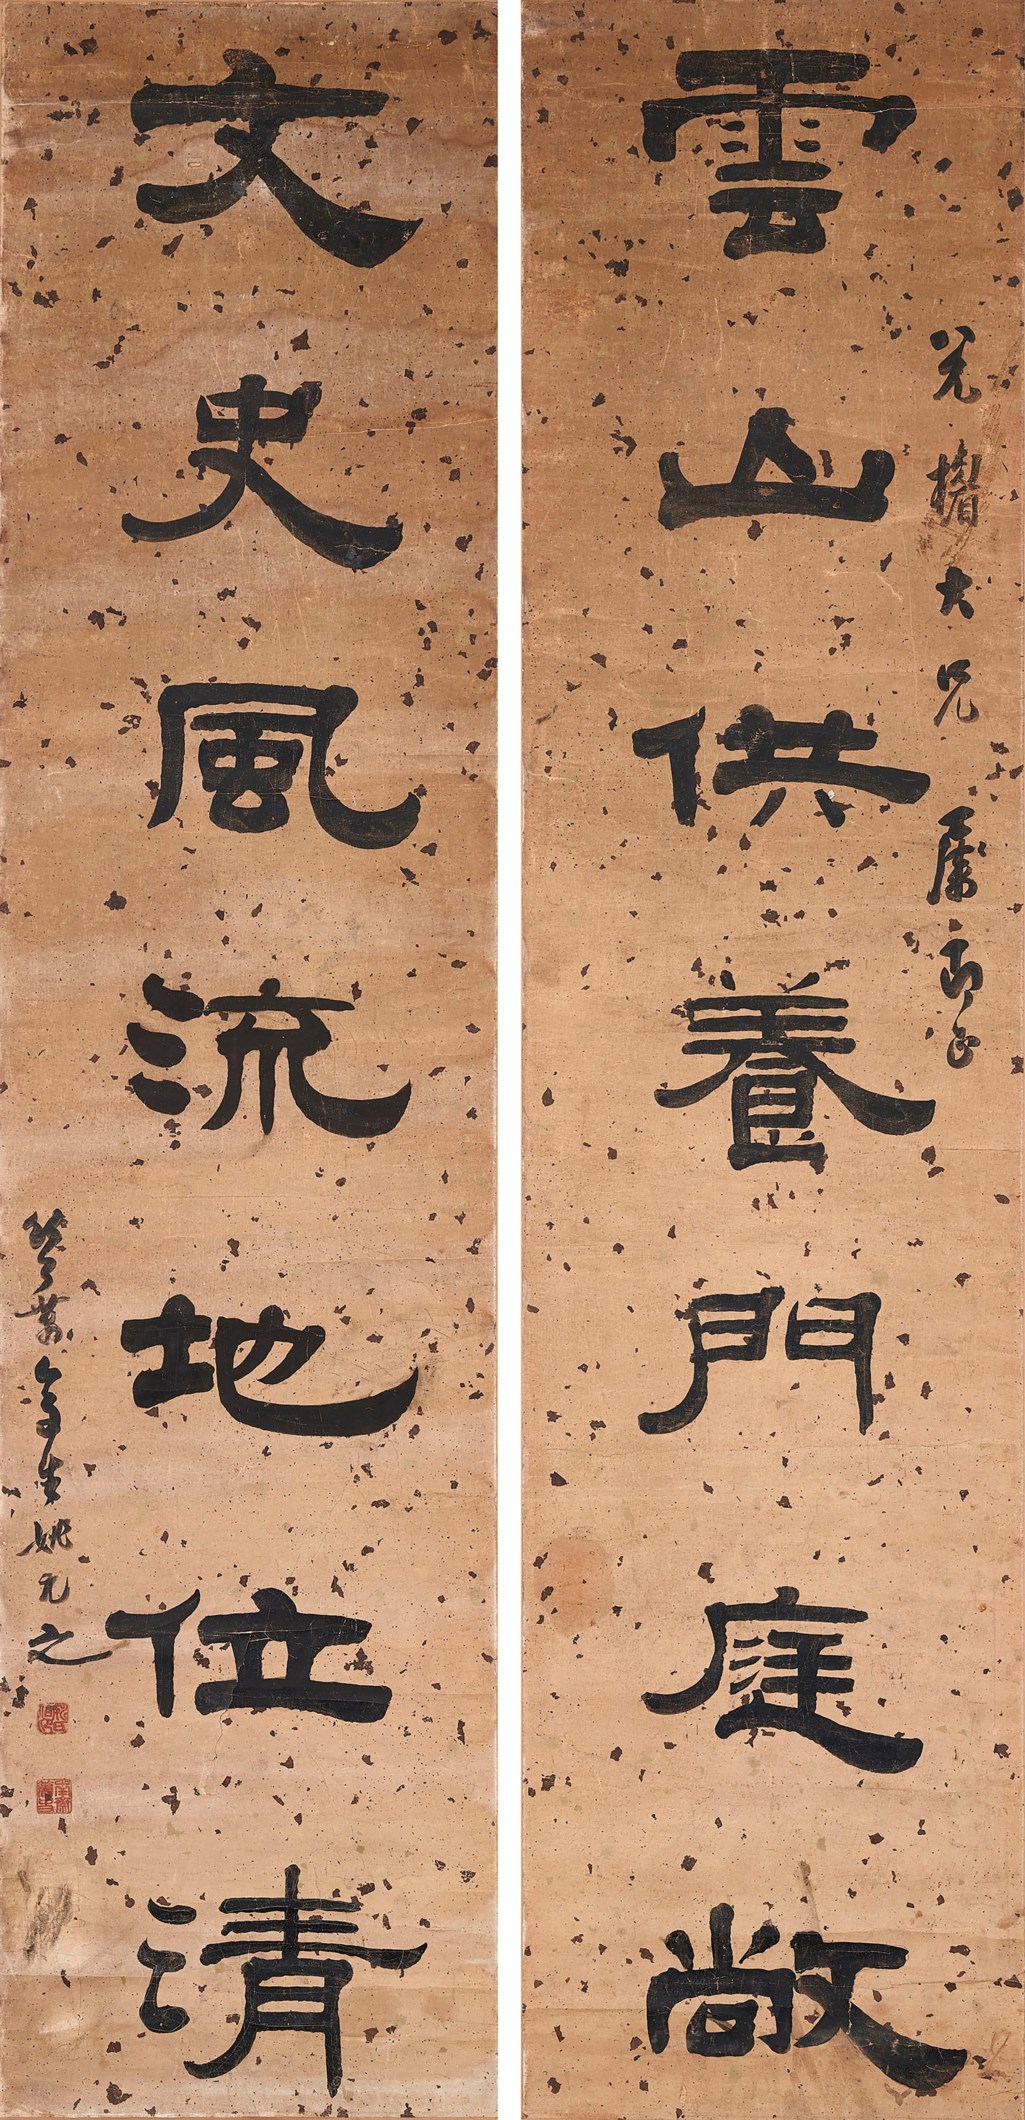 雲山供養門庭敞
大兄屬即正
文史風流地位清
竹葉亭生姚元之